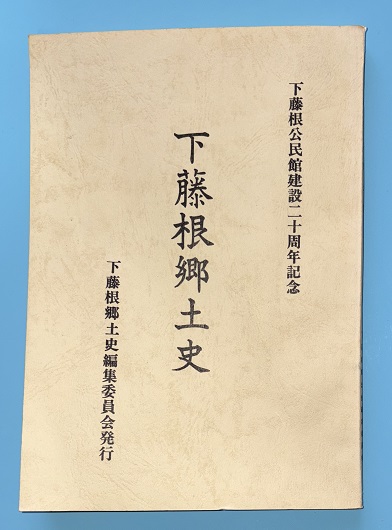 下藤根公民館建設二十周年記念
下藤根郷土史
下藤根郷土史編集委員会発行